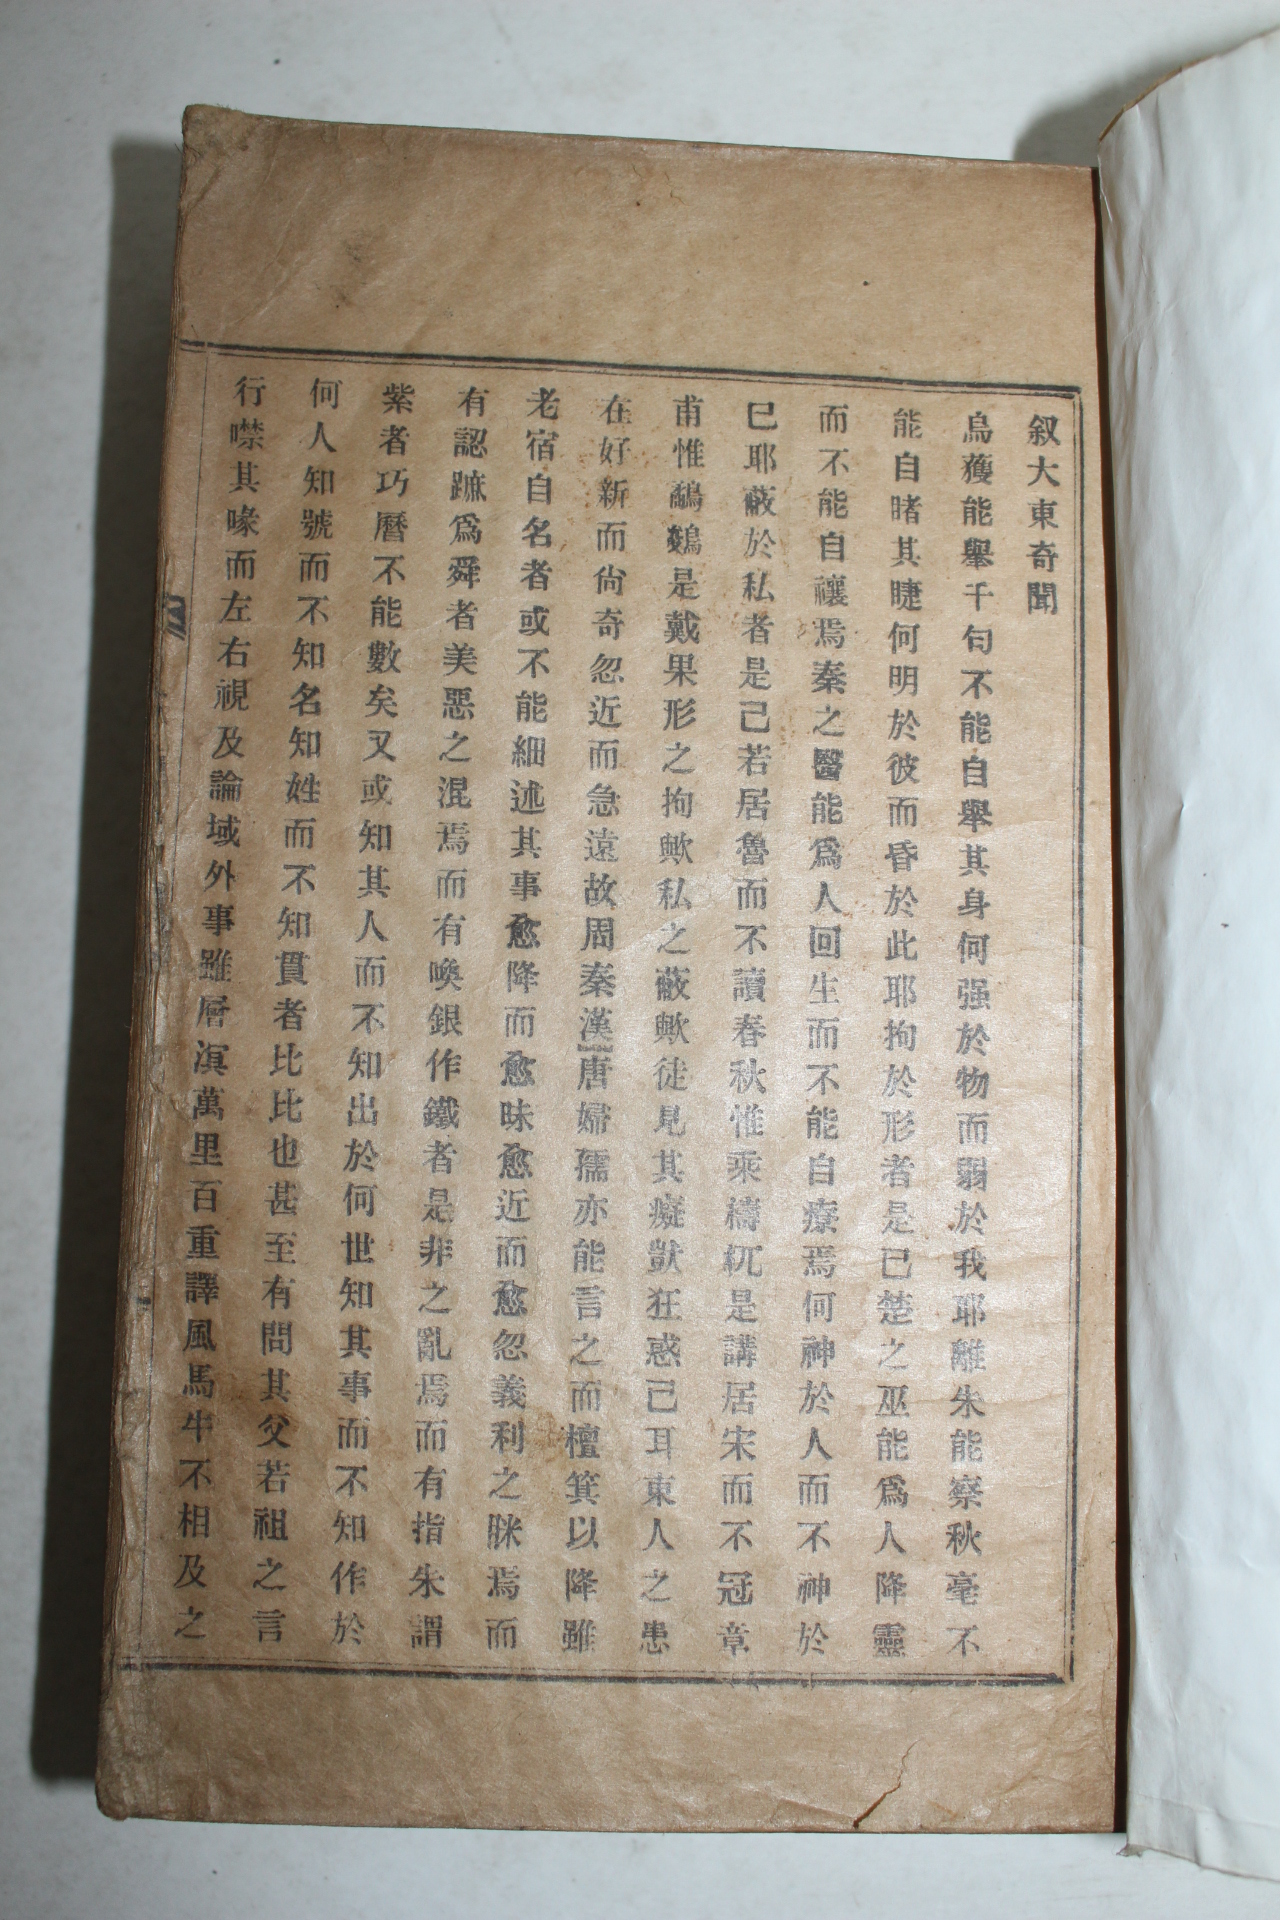 叙大東奇聞
烏獲能擧千匀不能自擧其身何强於物而弱於我耶離朱能察秋毫不
能自睹其睫何明於彼而昏於此耶拘於形者是已楚之巫能爲人降靈
而不能自禳焉秦之醫能爲人回生而不能自療焉何神於人而不神於
巳耶蔽於私者是己若居魯而不讀春秋惟乘檮杌是講居宋而不冠章
甫惟鷸鷄是戴果形之拘歟私之蔽歟徒見其癡獃狂惑己耳東人之患
在好新而尙奇忽近而急遠故周秦漢唐婦孺亦能言之而檀箕以降雖
老宿自名者或不能細述其事愈降而愈昧愈近而愈忽義利之眯焉而
有認蹠爲舜者美惡之混焉而有喚銀作鐵者是非之亂焉而有指朱謂
紫者巧曆不能數矣又或知其人而不知出於何世知其事而不知作於
何人知號而不知名知姓而不知貫者比比也甚至有問其父若祖之言
行噤其喙而左右視及論域外事雖層溟萬里百重譯風馬牛不相及之